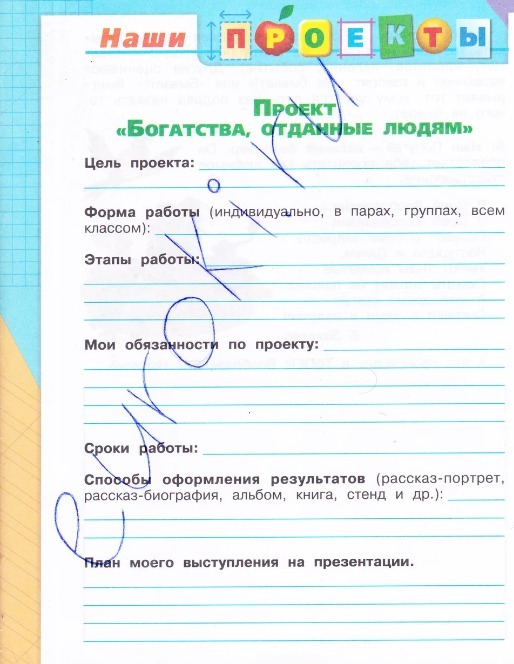 Наши ПРОЕКТЫ
ПРОЕКТ
«БОГАТСТВА, ОТДАННЫЕ ЛЮДЯМ»
Цель проекта:
Форма работы (индивидуально, в парах, группах, всем
классом):
Этапы работы:
Мои обязанности по проекту:
Сроки работы:
Способы оформления результатов (рассказ-портрет,
рассказ-биография, альбом, книга, стенд и др.):
План моего выступления на презентации.
euroki.ru